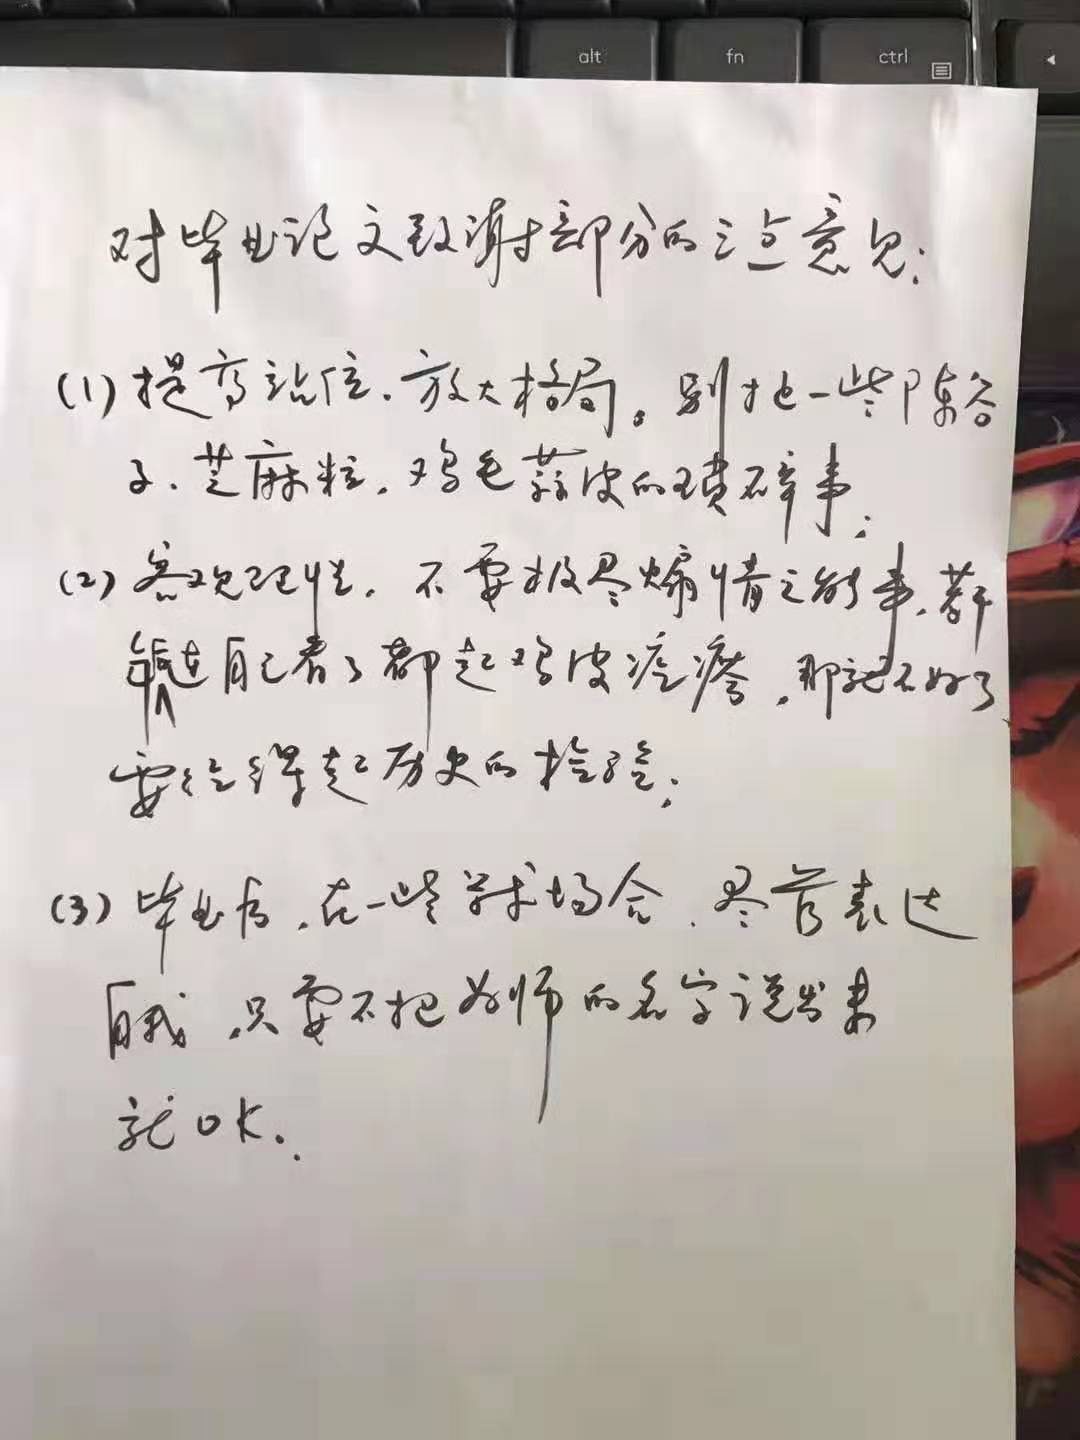 alt fn ctrl
对毕业论文致谢部分的三点意见:
(1) 提高站位、放大格局。别扯一些陈谷
子、芝麻粒,鸡毛蒜皮的琐碎事;
(2) 客观理性,不要极尽煽情之能事,若干
年后连自己看了都起鸡皮疙瘩,那就不好了
要经得起历史的检验;
(3) 毕业后,在一些学术场合,尽管表达
自我,只要不把为师的名字说出来
就OK.